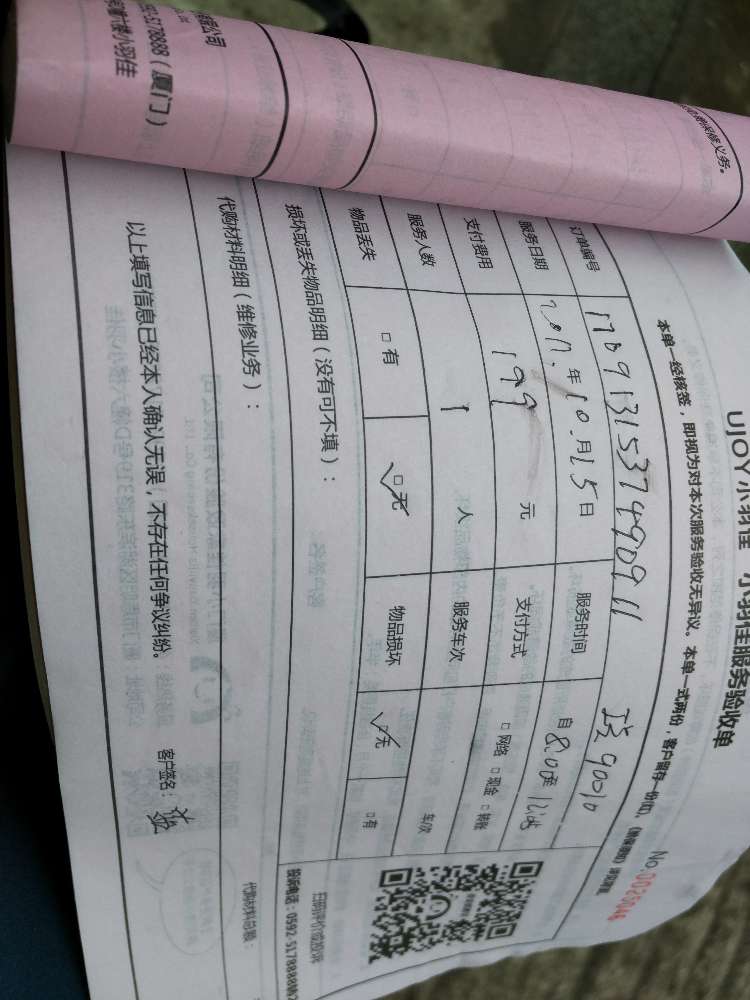 UJOY小羽佳 小羽佳服务验收单
本单一经核签，即视为对本次服务验收无异议。本单一式两份，客户留存一份(红)，
No.0025046
订单编号 170913153749091
服务日期 2017.年10.月15日 服务时间 自8:00至12:00
支付费用 199 元 支付方式 □网络 □现金 □转账
服务人数 1 人 服务车次 车次
物品丢失 □有 ☑无 物品损坏 ☑无 □有
损坏或丢失物品明细（没有可不填）：
代购材料明细（维修业务）：
代购材料总额：
以上填写信息已经本人确认无误，不存在任何争议纠纷。
客户签名：
扫码评价或投诉
投诉电话：0592-5178888
公司
5178888（厦门）
楼小羽佳
保修义务。